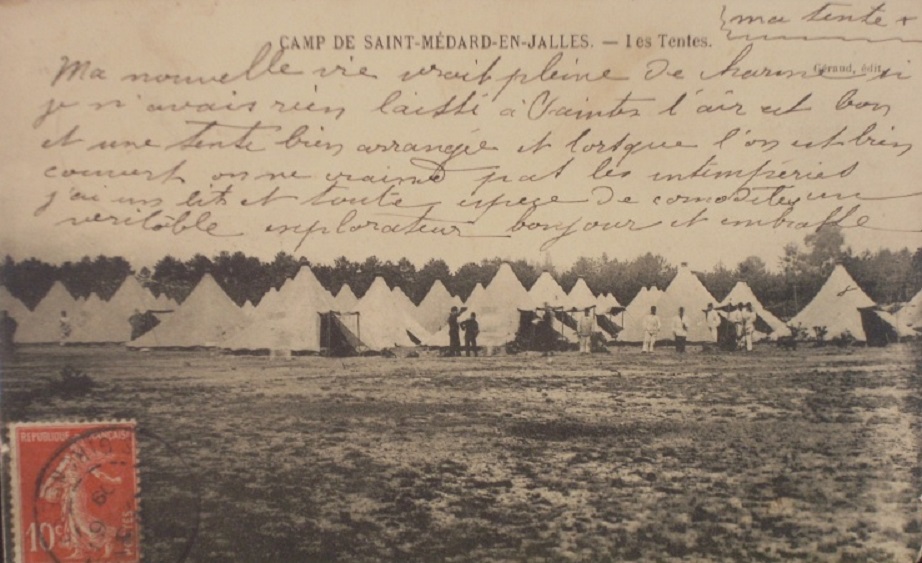 ma tente +
CAMP DE SAINT-MÉDARD-EN-JALLES. — Les Tentes.
Géraud, édit.
Ma nouvelle vie vrait pleine de charme si
je n'avais rien laissé à Saintes l'air est bon
et une tente bien arrangée et lorsque l'on est bien
couvert on ne craint pas les intempéries
j'ai un lit et toute espese de comodités un
veritable explorateur bonjour et embrasse
REPUBLIQUE FRANÇAISE
10c
POSTES